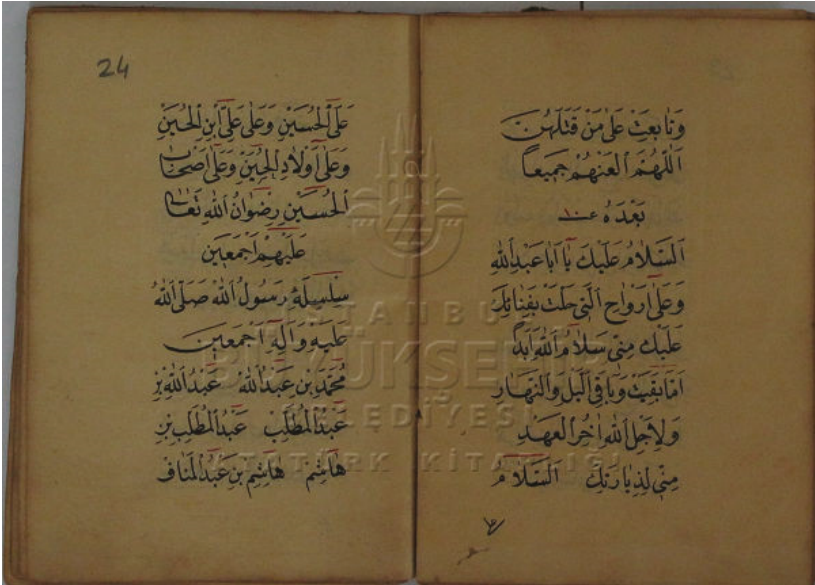 وَتَابَعَتْ عَلٰى مَنْ قَتَلَهُنَ
اَللّٰهُمَّ الْعَنْهُمْ جَمِيعاً
بَعْدَهُ ١٠
اَلسَّلَامُ عَلَيْكَ يَا اَبَا عَبْدِ اللّٰهِ
وَعَلٰى اَرْوَاحِ الَّتِى حَلَّتْ بِفِنَائِكَ
عَلَيْكَ مِنِّى سَلَامُ اللّٰهِ اَبَداً
مَا بَقِيَتْ وَبَاقِى الَّيْلِ وَالنَّهَارِ
وَلِاَجْلِ اللّٰهِ اٰخِرُ الْعَهْدِ
مِنِّى لِذِيَارَتِكَ اَلسَّلَامُ
24
عَلَى الْحُسَيْنِ وَعَلٰى عَلِىِّ ابْنِ الْحُسَيْنِ
وَعَلٰى اَوْلَادِ الْحُسَيْنِ وَعَلٰى اَصْحَابِ
الْحُسَيْنِ رِضْوَانُ اللّٰهِ تَعَالٰى
عَلَيْهِمْ اَجْمَعِينَ
سِلْسِلَهٔ رَسُولُ اللّٰه صَلَّى اللّٰهُ
عَلَيْهِ وَاٰلِهِ اَجْمَعِينَ
مُحَمَّد بِنِ عَبْدُاللّٰه عَبْدُاللّٰه بِنِ
عَبْدُالْمُطَلِّبْ عَبْدُالْمُطَلِّبْ بِنِ
هَاشِمْ هَاشِمِ بِنِ عَبْدُالْمَنَافْ
İSTANBUL
BÜYÜKŞEHİR
BELEDİYESİ
ATATÜRK KİTAPLIĞI